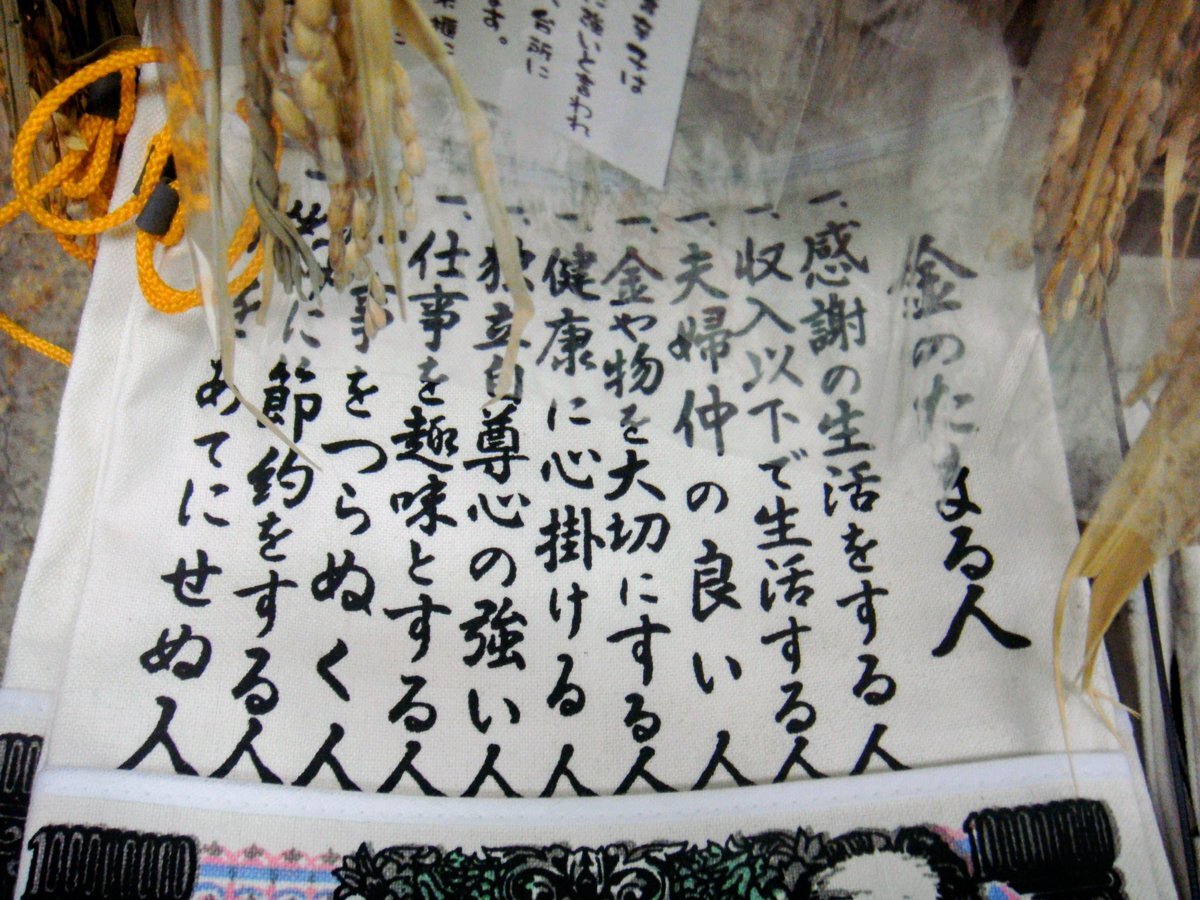 金のたまる人
一、感謝の生活をする人
一、収入以下で生活する人
一、夫婦仲の良い人
一、金や物を大切にする人
一、健康に心掛ける人
一、独立自尊心の強い人
一、仕事を趣味とする人
事をつらぬく人
に節約をする人
あてにせぬ人
に強いと言わ
台所に
ます。